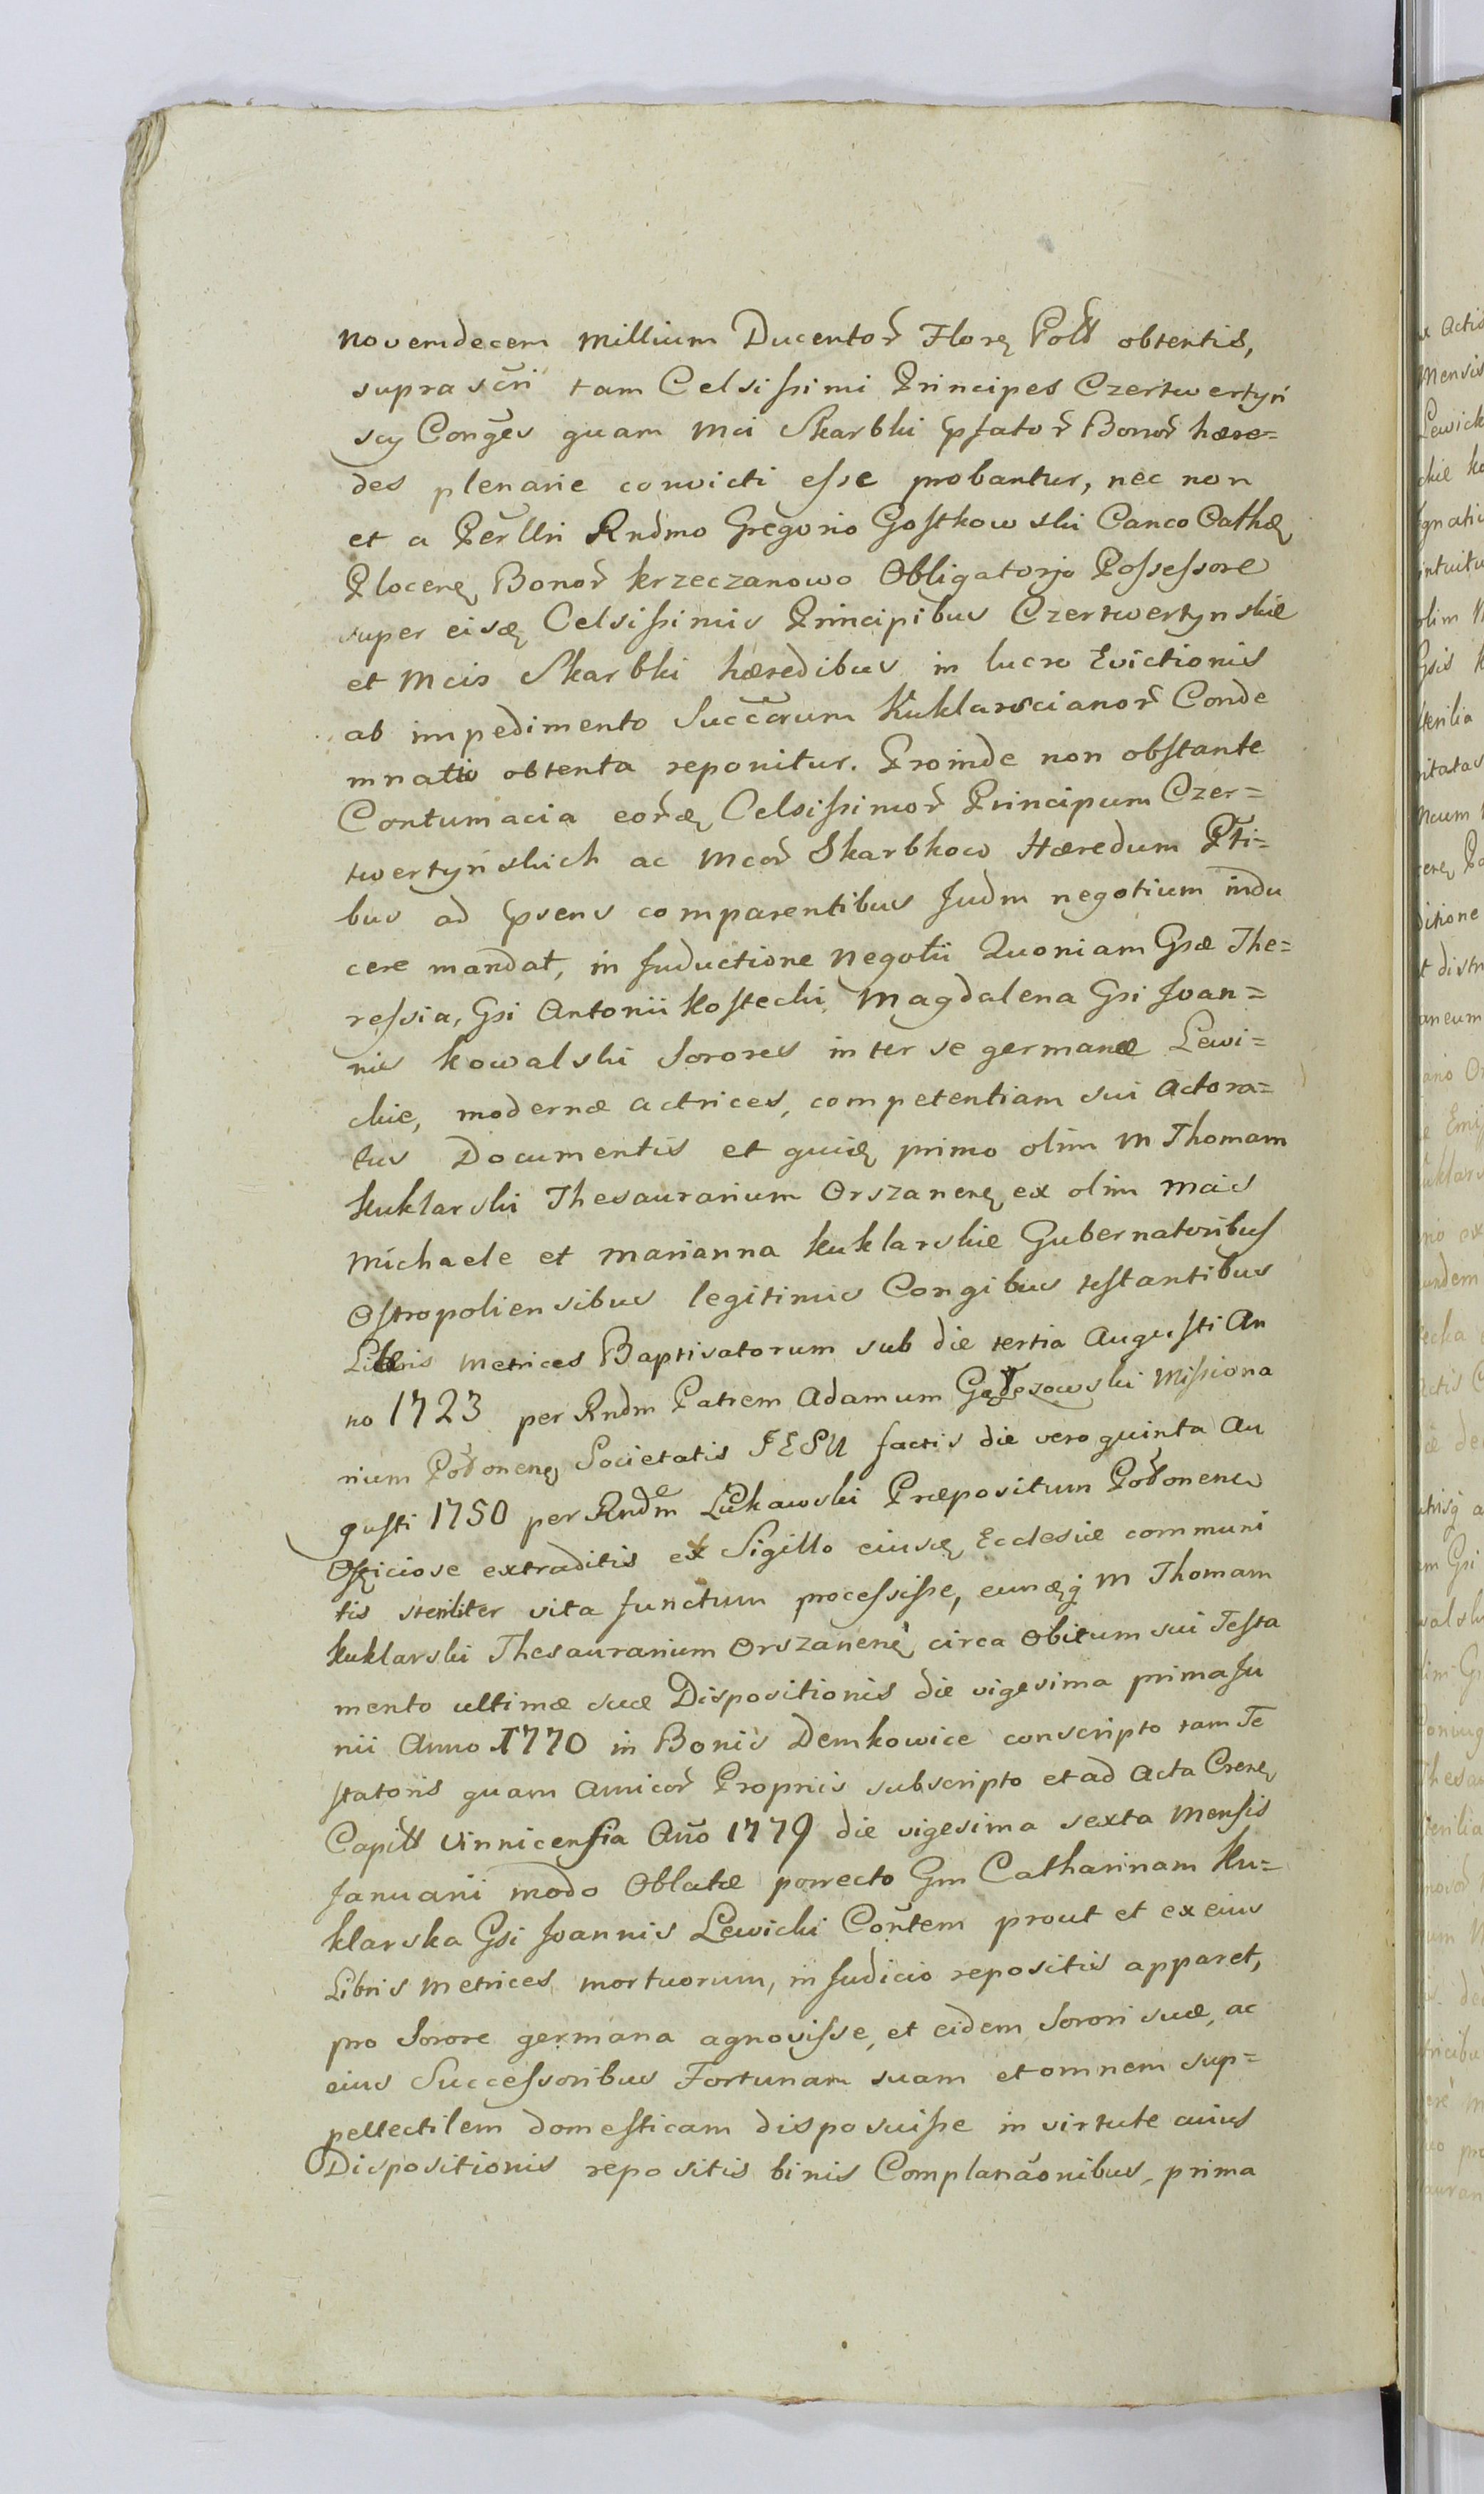 novemdecem millium Ducentor̃ Flore̜ Poll̃ obtentis,
suprascr̃i tam Celsissimi Principes Czertwertyń
scy Cong̃es quam Mci Skarbki p̃fator̃ Bonor̃ hære=
des plenarie convicti esse probantur, nec non
et a Perll̃ri Rnd̃mo Gregorio Gostkowski Canco Cathe̜
Plocene̜ Bonor̃ Krzeczanowo Obligatorjo Possessore
super eisde̜ Celsissimis Principibus Czertwertynskie
et Mcis Skarbki hæredibus in lucro Evictionis
ab impedimento Succ̃orum Kuklarscianor̃ Conde
mnatio obtenta reponitur. Proinde non obstante
Contumacia eor̃de̜ Celsissimor̃ Principum Czer=
twertyńskich ac Mcor̃ Skarbkow Hæredum Pt̃i=
bus ad p̃sens comparentibus Judm negotium indu
cere mandat, in Inductione Negotii Quoniam Gsæ The=
ressia, Gsi Antonii Kostecki, Magdalena Gsi Joan=
nis Kowalski Sorores inter se germanæ Lewi=
ckie, modernæ actrices, competentiam sui actora=
tus Documentis et quide̜ primo olim M Thomam
Kuklarski Thesaurarium Orszanene̜ ex olim Mcis
Michaele et Marianna Kuklarskie Gubernatoribus
Ostropoliensibus legitimis Congibus testantibus
Libris Metrices Baptisatorum sub die tertia Augusti An
no 1723 per Rndm Patrem Adamum Missiona
rium Societatis JESU factis die vero quinta Au
gusti 1750 per Rnd̃m Lukawski Præpositum
Officiose extraditis ex Sigillo eiusde̜ Ecclesiæ communi
tis steriliter vita functum processisse, eunde̜q̃ M Thomam
Kuklarski Thesaurarium Orszanene̜ circa Obitum sui Testa
mento ultimæ suæ Dispositionis die vigesima prima Ju
nii Anno 1770 in Bonis Demkowice conscripto tam Te
statoris quam Amicor̃ Propriis subscripto et ad Acta Crene̜
Capitl̃l Vinnicensia Año 1779 die vigesima sexta Mensis
Januarii modo Oblatæ porrecto Gm Catharinam Ku=
klarska Gsi Joannis Lewicki Coñtem prout et ex eius
Libris Metrices mortuorum, in Judicio repositis apparet,
pro Sorore germana agnovisse, et eidem Sorori suæ, ac
eius Successoribus Fortunam suam et omnem sup=
pellectilem domesticam disposuisse in virtute cuius
Dispositionis repositis binis Complanãonibus, prima